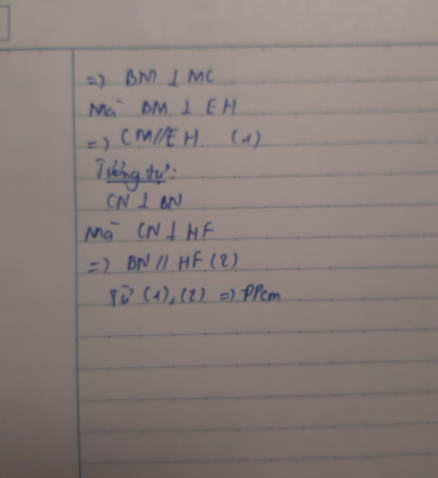 =) BM ⊥ MC
Mà BM ⊥ EH
=) CM//EH (1)
Tương tự:
CN ⊥ BN
Mà CN ⊥ HF
=) BN // HF (2)
Từ (1), (2) => PPcm